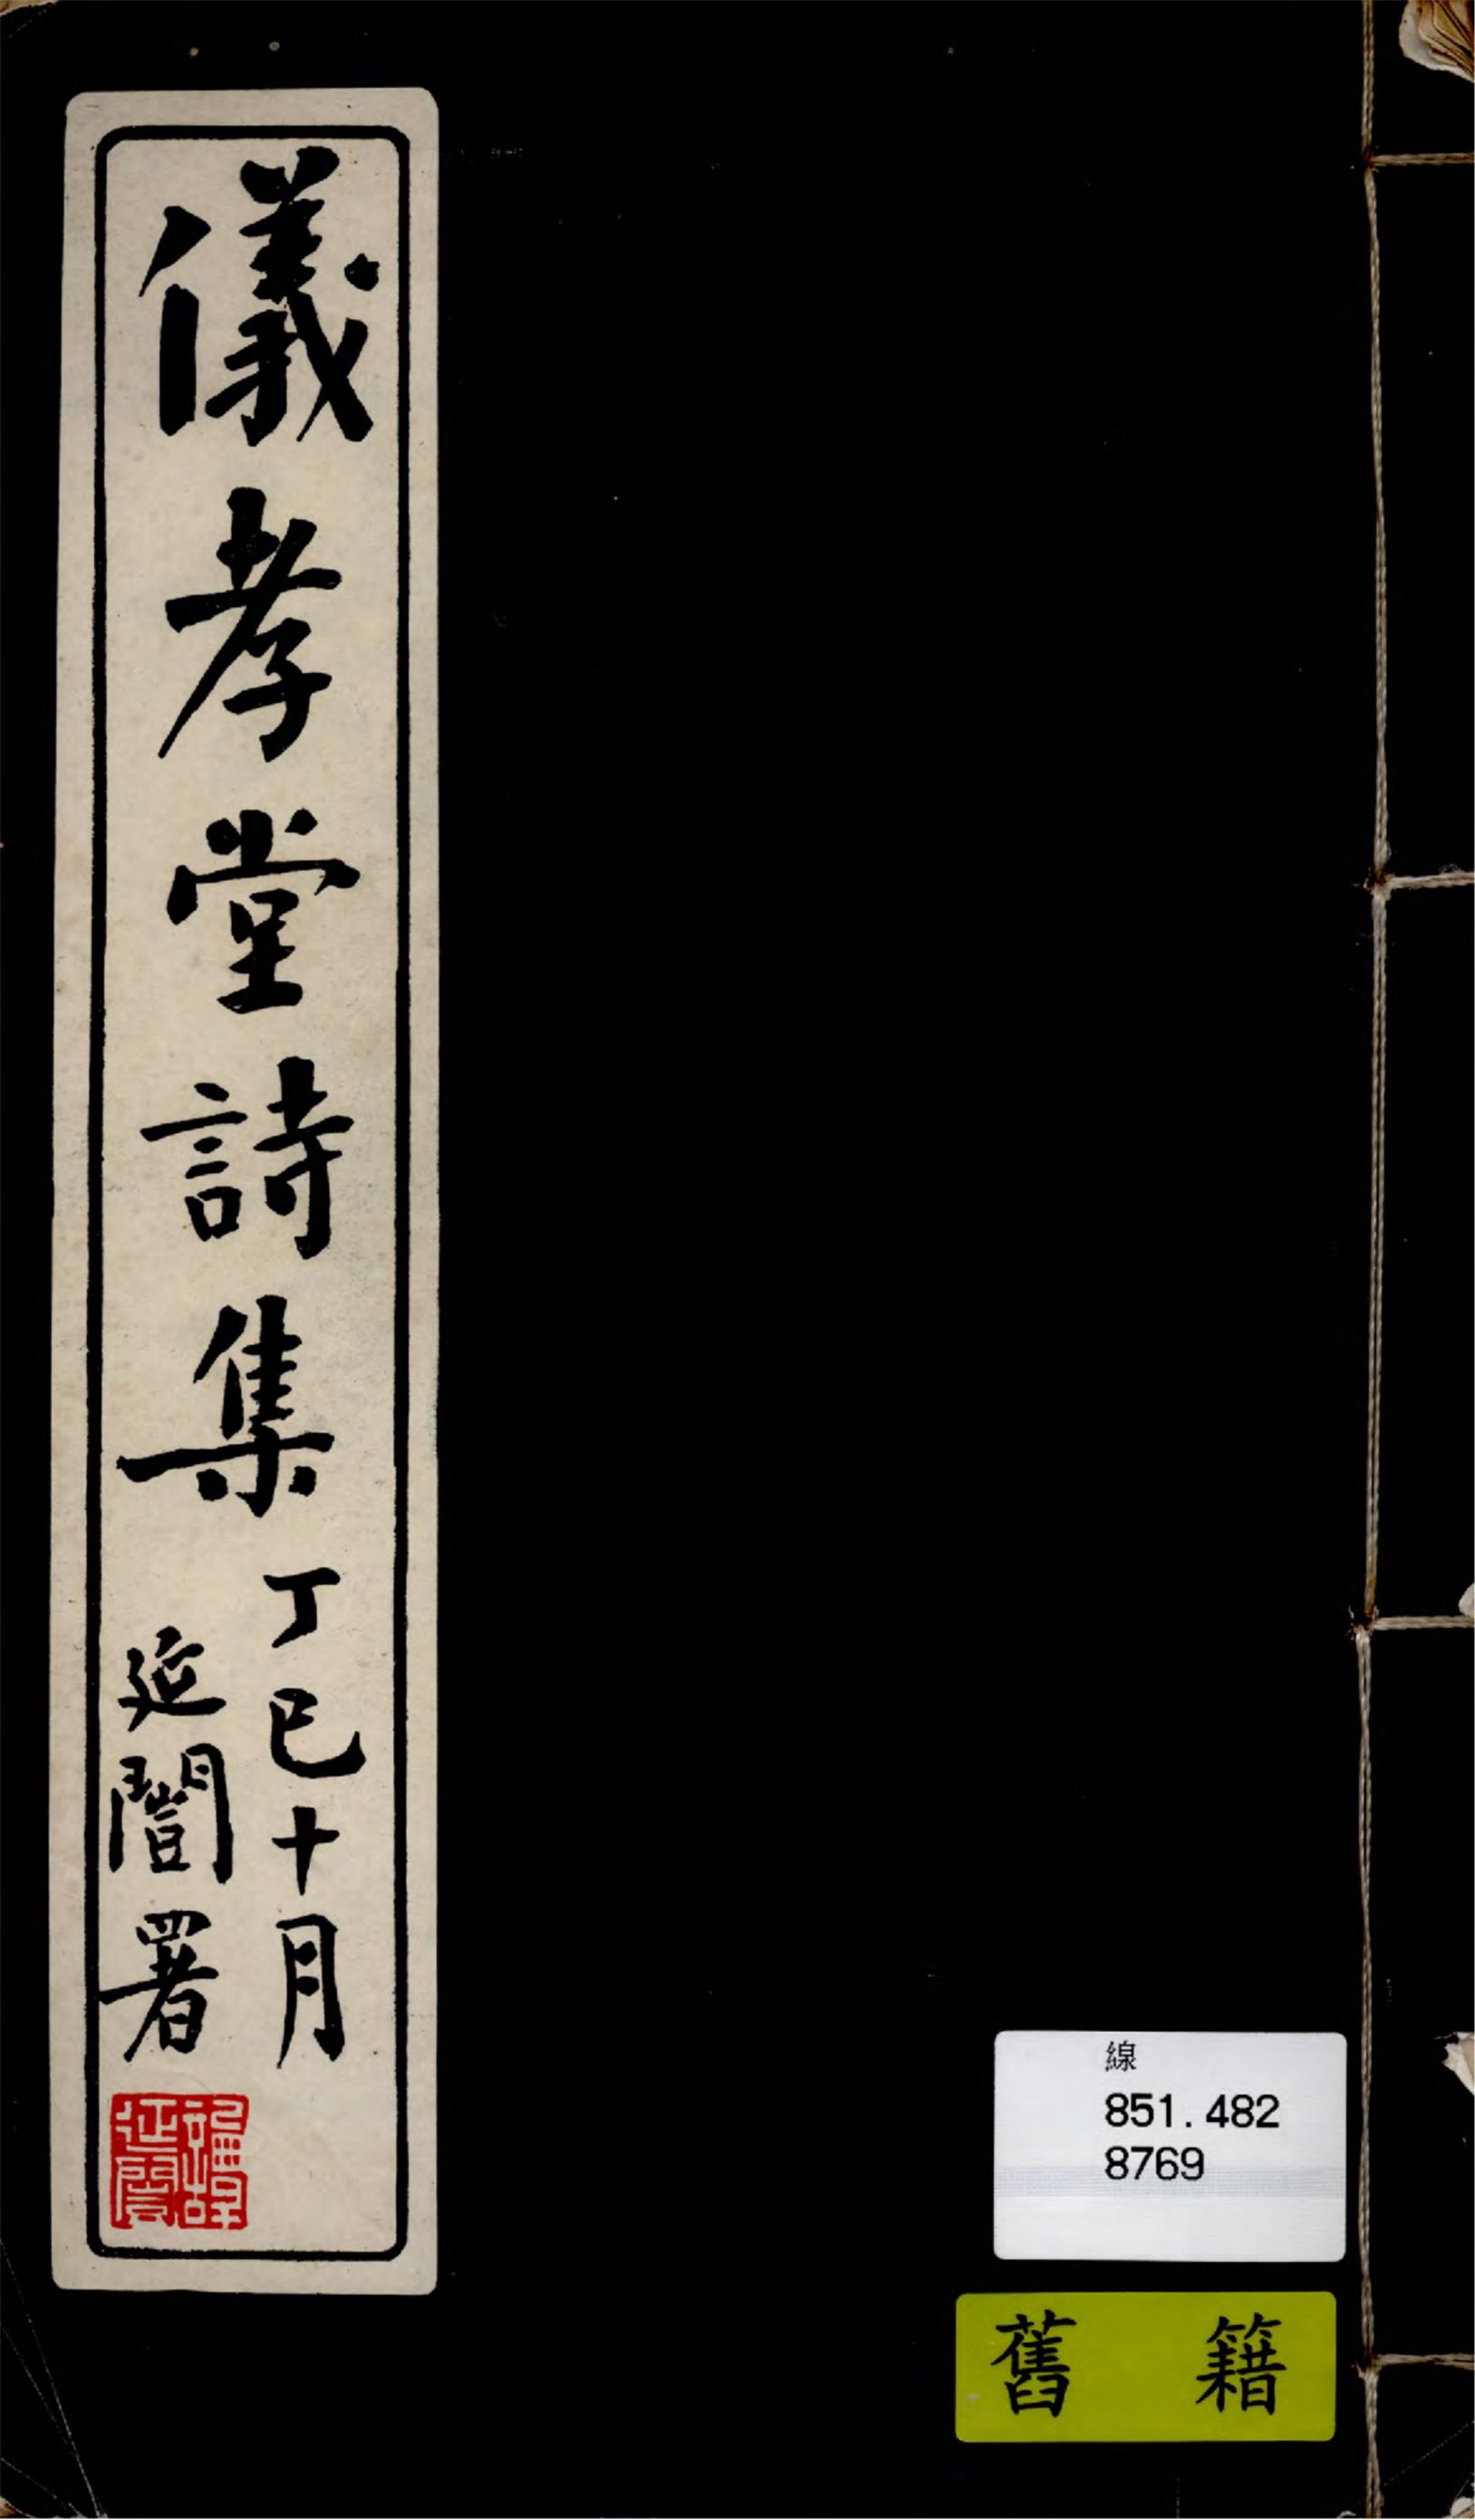 儀孝堂詩集
丁巳十月
延闓署
線
851.482
8769
舊籍